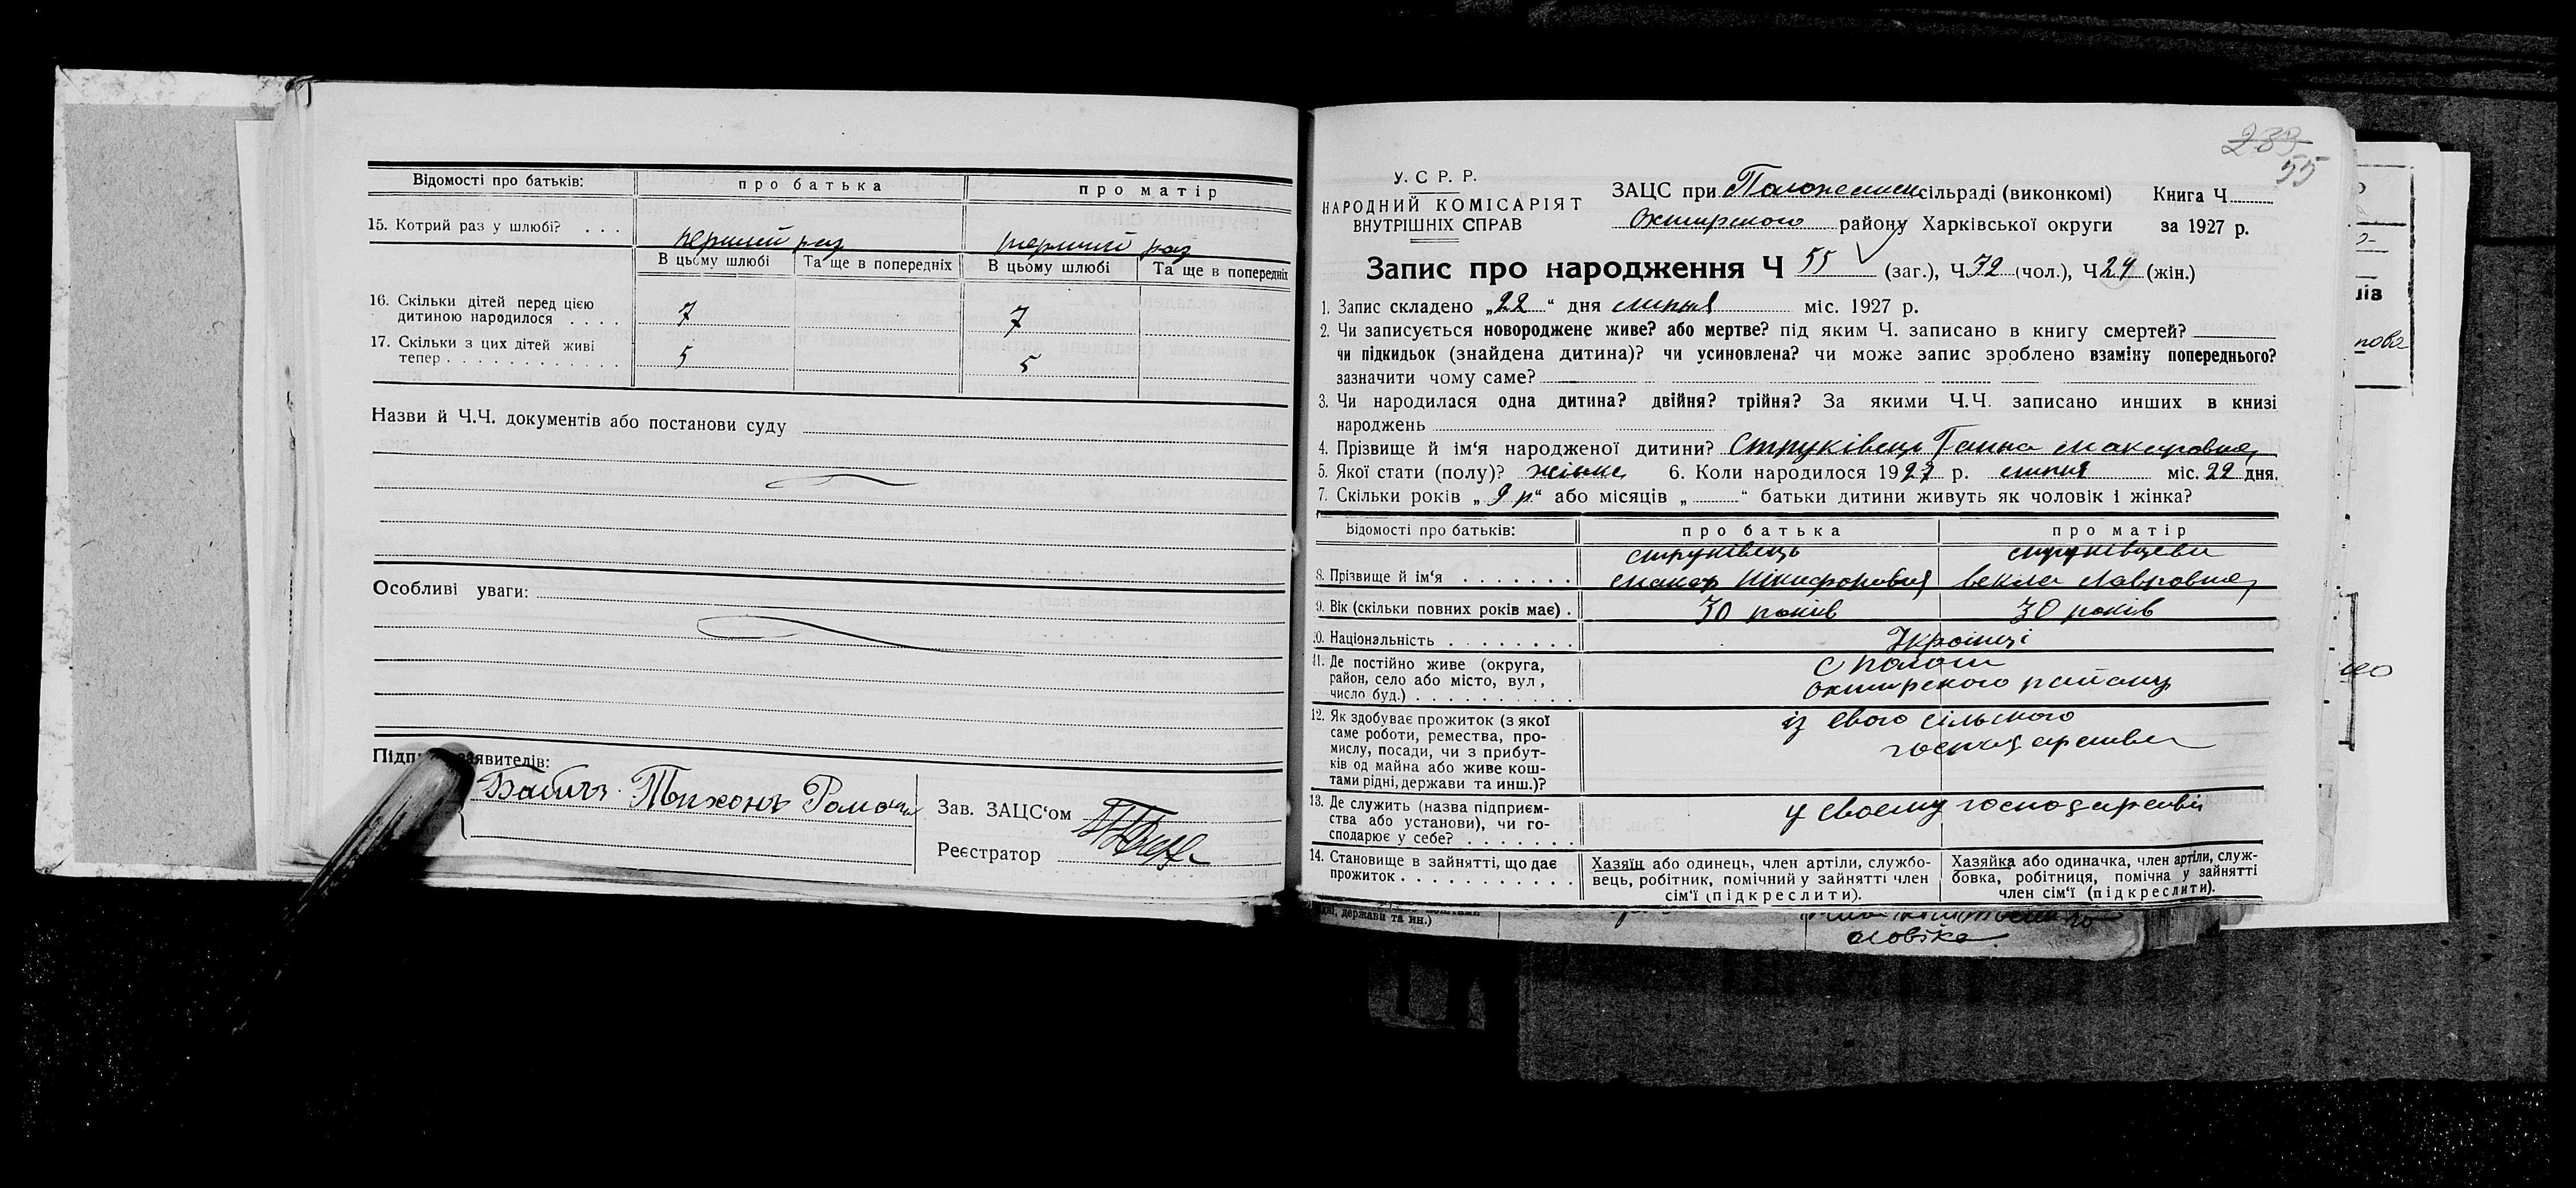 Відомості про батьків: про батька про матір
15. Котрий раз у шлюбі? . . . перший раз перший раз
В цьому шлюбі Та ще в попередніх В цьому шлюбі Та ще в попередніх
16. Скільки дітей перед цією
дитиною народилося . . . . 7 7
17. Скільки з цих дітей живі
тепер . . . . . . . . . . . 5 5
Назви й Ч.Ч. документів або постанови суду
Особливі уваги:
Підп аявителів:
Бабичъ Тихонъ
Зав. ЗАЦС'ом
Реєстратор
283
55
У. С Р. Р.
НАРОДНИЙ КОМІСАРІЯТ
ВНУТРІШНІХ СПРАВ
ЗАЦС при сільраді (виконкомі) Книга Ч
Охтирского району Харківської округи за 1927 р.
Запис про народження Ч 55 (заг.), Ч 32 (чол.), Ч 24 (жін.)
1. Запис складено „22“ дня липня міс. 1927 р.
2. Чи записується новороджене живе? або мертве? під яким Ч. записано в книгу смертей?
чи підкидьок (знайдена дитина)? чи усиновлена? чи може запис зроблено взаміну попереднього?
зазначити чому саме?
3. Чи народилася одна дитина? двійня? трійня? За якими Ч.Ч. записано инших в книзі
народжень
4. Прізвище й ім'я народженої дитини? Струківець Ганна Макаровна
5. Якої стати (полу)? жіноче 6. Коли народилося 1927 р. липня міс. 22 дня.
7. Скільки років „9 р“ або місяців „ “ батьки дитини живуть як чоловік і жінка?
Відомості про батьків: про батька про матір
Струківець Струківцева
8. Прізвище й ім'я . . . . . . . Макар Нікифорович Векла Лавровна
9. Вік (скільки повних років має) . 30 років 30 років
10. Національність . . . . . . . . Українці
11. Де постійно живе (округа,
район, село або місто, вул,
число буд.) . . . . . . . . . .
Охтирского району
12. Як здобуває прожиток (з якої
саме роботи, ремества, про-
мислу, посади, чи з прибут-
ків од майна або живе кош-
тами рідні, держави та инш.)?
із свого сільского
господарства
13. Де служить (назва підприєм-
ства або установи), чи го-
сподарює у себе? . . . . . . .
у своему господарстві
14. Становище в зайнятті, що дає
прожиток . . . . . . . . . . . .
Хазяїн або одинець, член артіли, службо-
вець, робітник, помічний у зайнятті член
сім'ї (підкреслити).
Хазяйка або одиначка, член артіли, служ-
бовка, робітниця, помічна у зайнятті
член сім'ї (підкреслити).
держави та ин.)